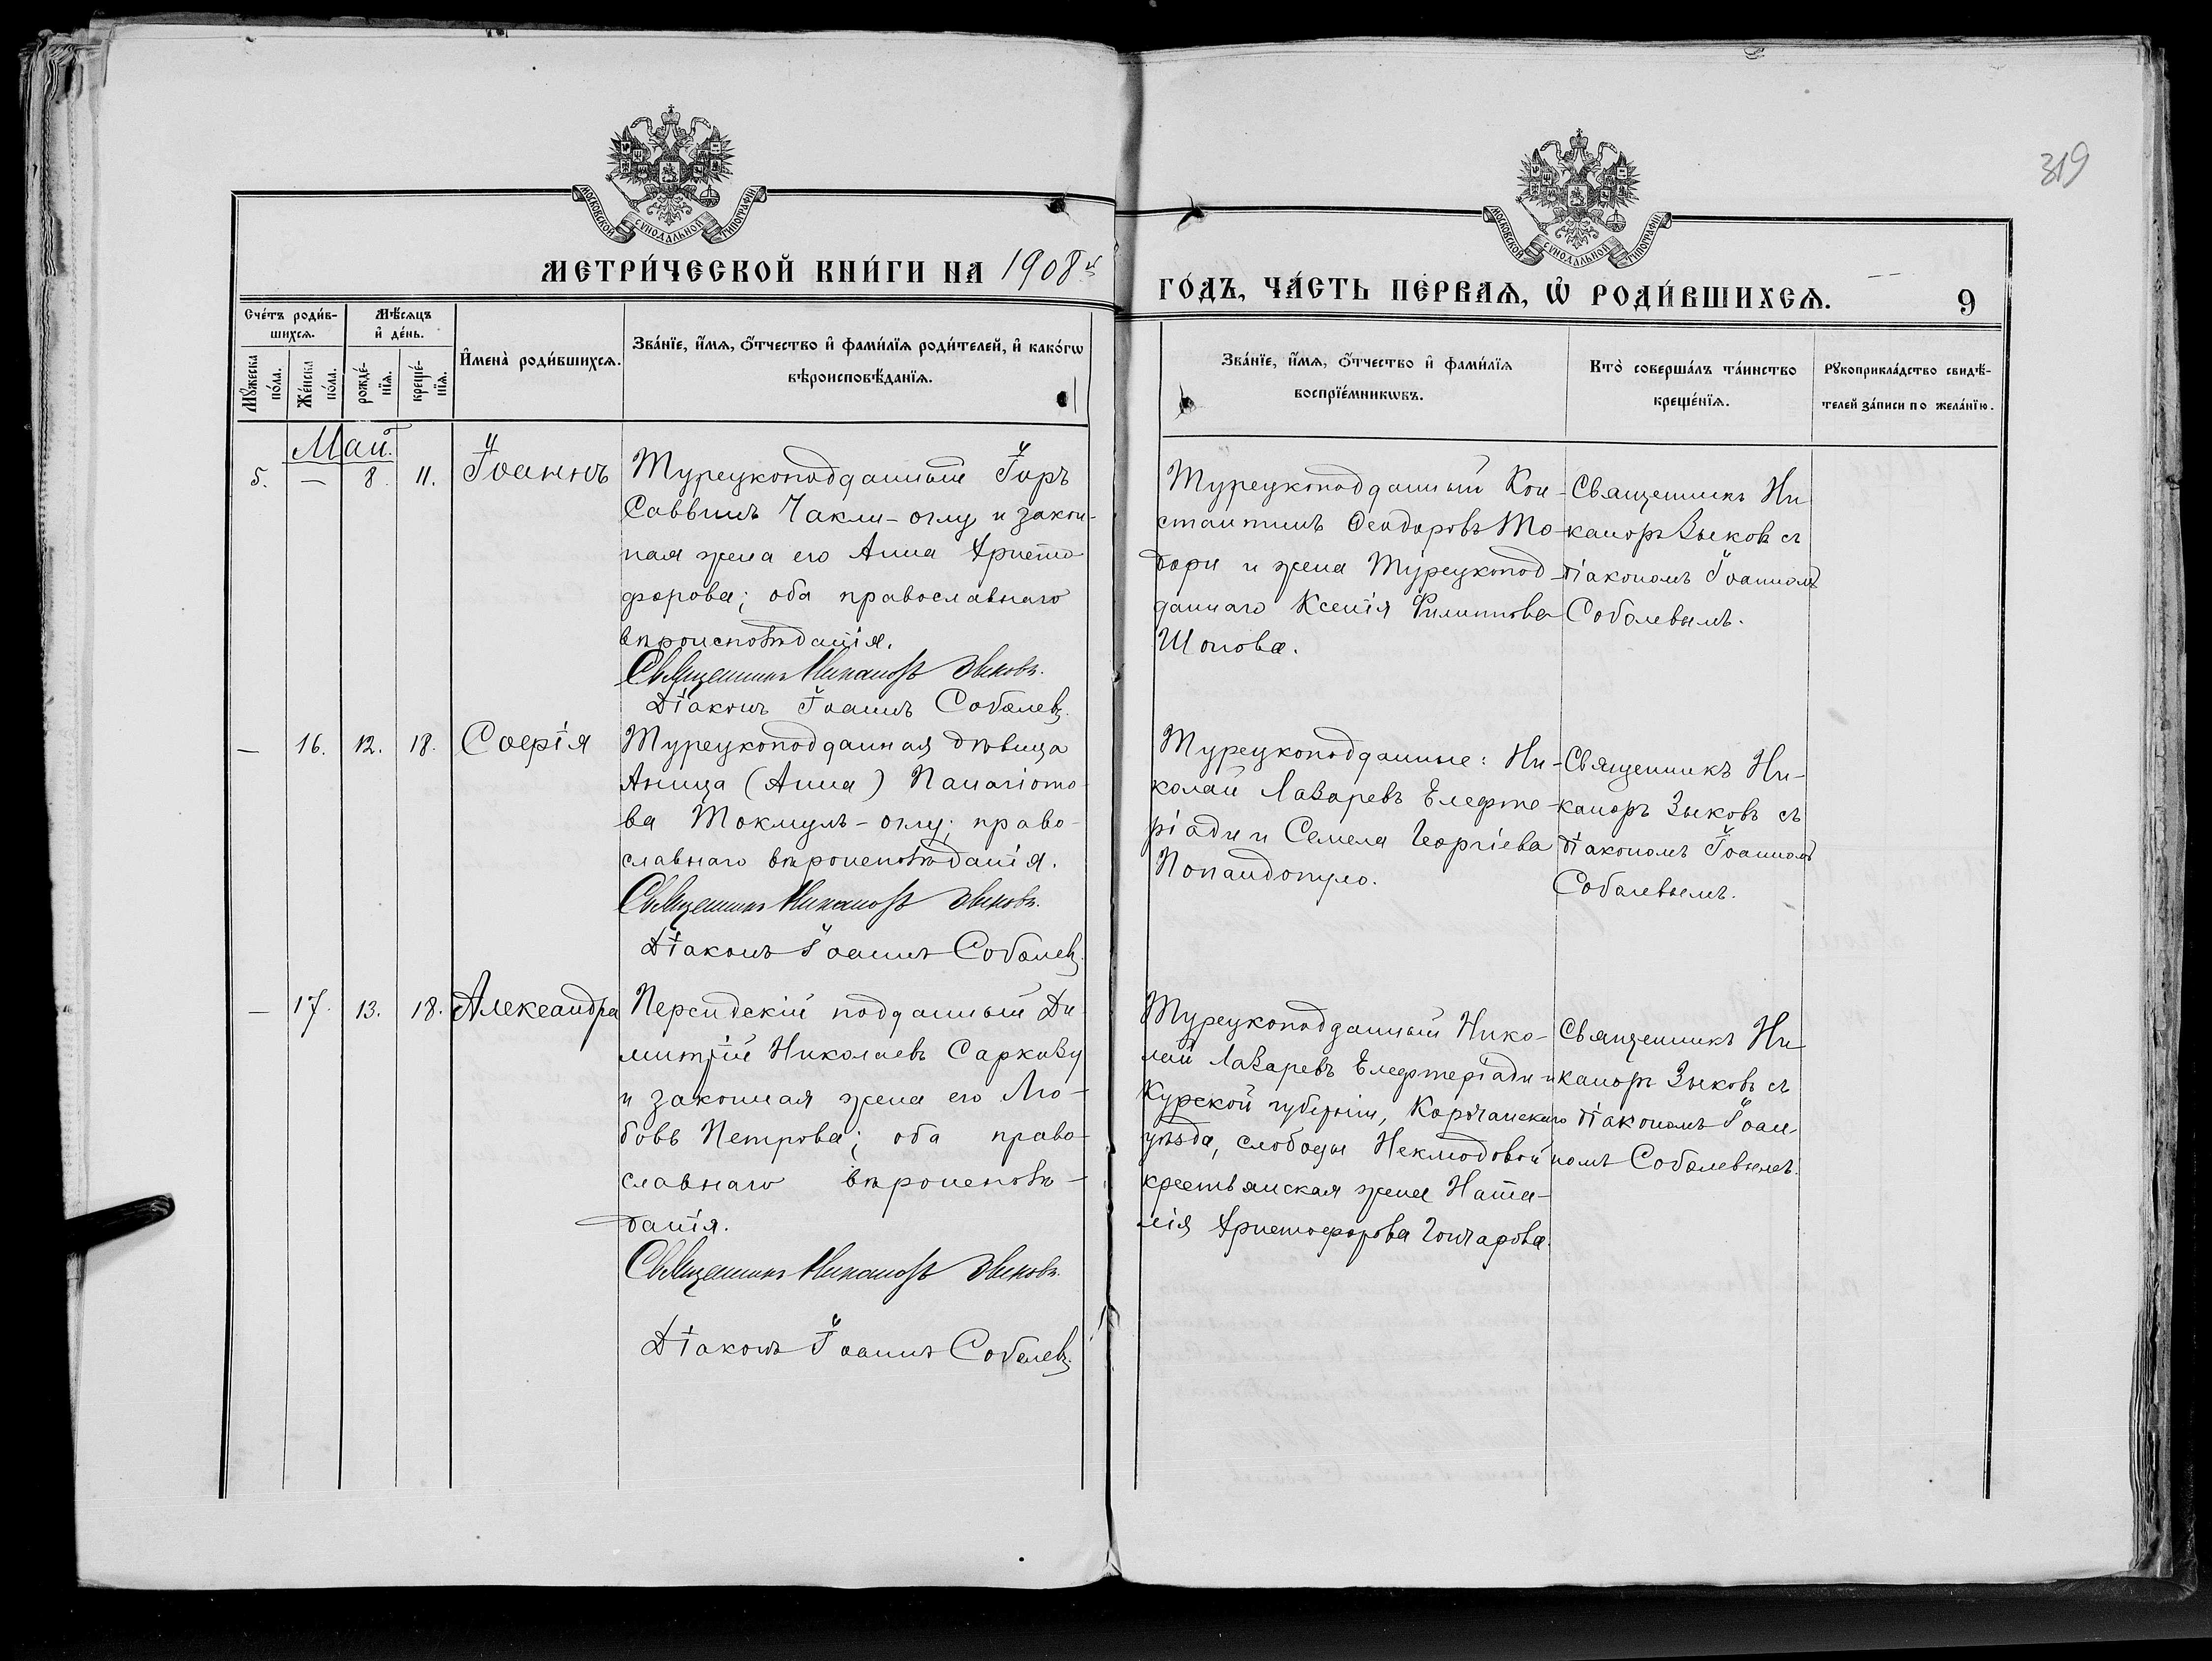 319
МОСКОВСКОЙ СѴНОДАЛЬНОЙ ТИПОГРАФІИ
МОСКОВСКОЙ СѴНОДАЛЬНОЙ ТИПОГРАФІИ
МЕТРИ́ЧЕСКОЙ КНИ́ГИ НА 1908й
ГО́ДЪ, ЧА́СТЬ ПЕ́РВАѦ, Ѽ РОДИ́ВШИХСѦ.
9
Сче́тъ роди́в-
шихсѧ.
Мѣ́сѧцъ
и҆ де́нь.
Мꙋ́жеска
по́ла.
Же́нска
по́ла.
рожде́-
нїѧ.
креще́-
нїѧ.
И҆мена̀ роди́вшихсѧ.
Зва́нїе, и҆́мѧ, ѻ҆́тчество и҆ фами́лїѧ роди́телей, и҆ како́гѡ
вѣроисповѣ́данїѧ.
Зва́нїе, и҆́мѧ, ѻ҆́тчество и҆ фами́лїѧ
воспрїе́мникѡвъ.
Кто̀ соверша́лъ та́инство
креще́нїѧ.
Рꙋкоприкла́дство свидѣ́-
телей за́писи по жела́нїю.
Май.
5. — 8. 11. Іоаннъ
Турецкоподданный Іоръ
Саввинъ Чакли-оглу и закон-
ная жена его Анна Христо
форова; оба православнаго
вѣроисповѣданія.
Священникъ Никаноръ Зыковъ.
Діаконъ Іоаннъ Соболевъ.
Турецкоподданный Кон-
стантинъ Ѳеодоровъ То-
дори и жена Турецкопод-
даннаго Ксенія Филиппова
Шопова.
Священникъ Ни
каноръ Зыковъ съ
діакономъ Іоанномъ
Соболевымъ.
— 16. 12. 18. Софія
Турецкоподданная дѣвица
Аница (Анна) Панагіото-
ва Токмулъ-оглу; право-
славнаго вѣроисповѣданія.
Священникъ Никаноръ Зыковъ.
Діаконъ Іоаннъ Соболевъ.
Турецкоподданные: Ни-
колай Лазаревъ Елефте-
ріади и Семела Георгіева
Попандопуло.
Священникъ Ни-
каноръ Зыковъ съ
діакономъ Іоанномъ
Соболевымъ.
— 17. 13. 18. Александра
Персидскій подданный Ди
митрій Николаевъ Саркизу
и законная жена его Лю-
бовь Петрова; оба право-
славнаго вѣроисповѣ-
данія.
Священникъ Никаноръ Зыковъ.
Діаконъ Іоаннъ Соболевъ.
Турецкоподданный Нико-
лай Лазаревъ Елефтеріади и
Курской губерніи, Корочанскаго
уѣзда, слободы Неклюдовой
крестьянская жена Ната-
лія Христофорова Гончарова.
Священникъ Ни
каноръ Зыковъ съ
діакономъ Іоан-
номъ Соболевымъ.